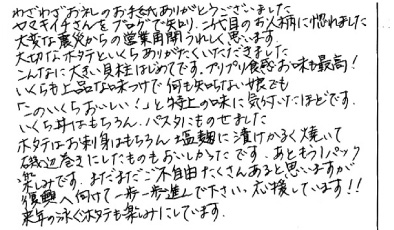 わざわざお礼のお手紙ありがとうございました
ヤマキイチさんをブログで知り、二代目のお人柄に惚れました
大変な震災からの営業再開うれしく思います。
大切なホタテといくらありがたくいただきました
こんなに大きい貝柱はじめてです。プリプリ食感お味も最高!
いくらも上品な味つけで何も知らない娘でも
「このいくらおいしい!」と特上の味に気付いたほどです。
いくら丼はもちろん、パスタにものせました
ホタテはお刺身はもちろん塩麹に漬けかるく焼いて
磯辺巻きにしたものもおいしかったです。あともう1パック
楽しみです。まだまだご不自由たくさんあると思いますが
復興へ向けて一歩一歩進んで下さい。応援しています!!
来年の泳ぐホタテも楽しみにしています。